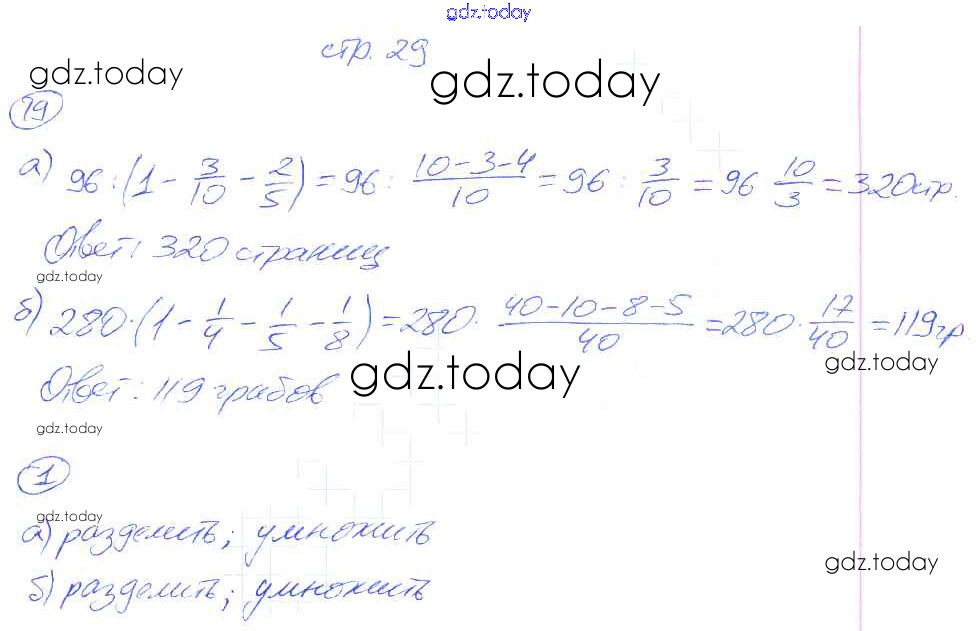 gdz.today
стр. 29
gdz.today
gdz.today
19
а) 96 : (1 - 3/10 - 2/5) = 96 : (10-3-4)/10 = 96 : 3/10 = 96 10/3 = 320 стр.
Ответ: 320 страниц
gdz.today
б) 280 · (1 - 1/4 - 1/5 - 1/8) = 280 · (40-10-8-5)/40 = 280 · 17/40 = 119 гр.
gdz.today
Ответ: 119 грабов
gdz.today
gdz.today
1
gdz.today
а) разделить; умножить
gdz.today
б) разделить; умножить